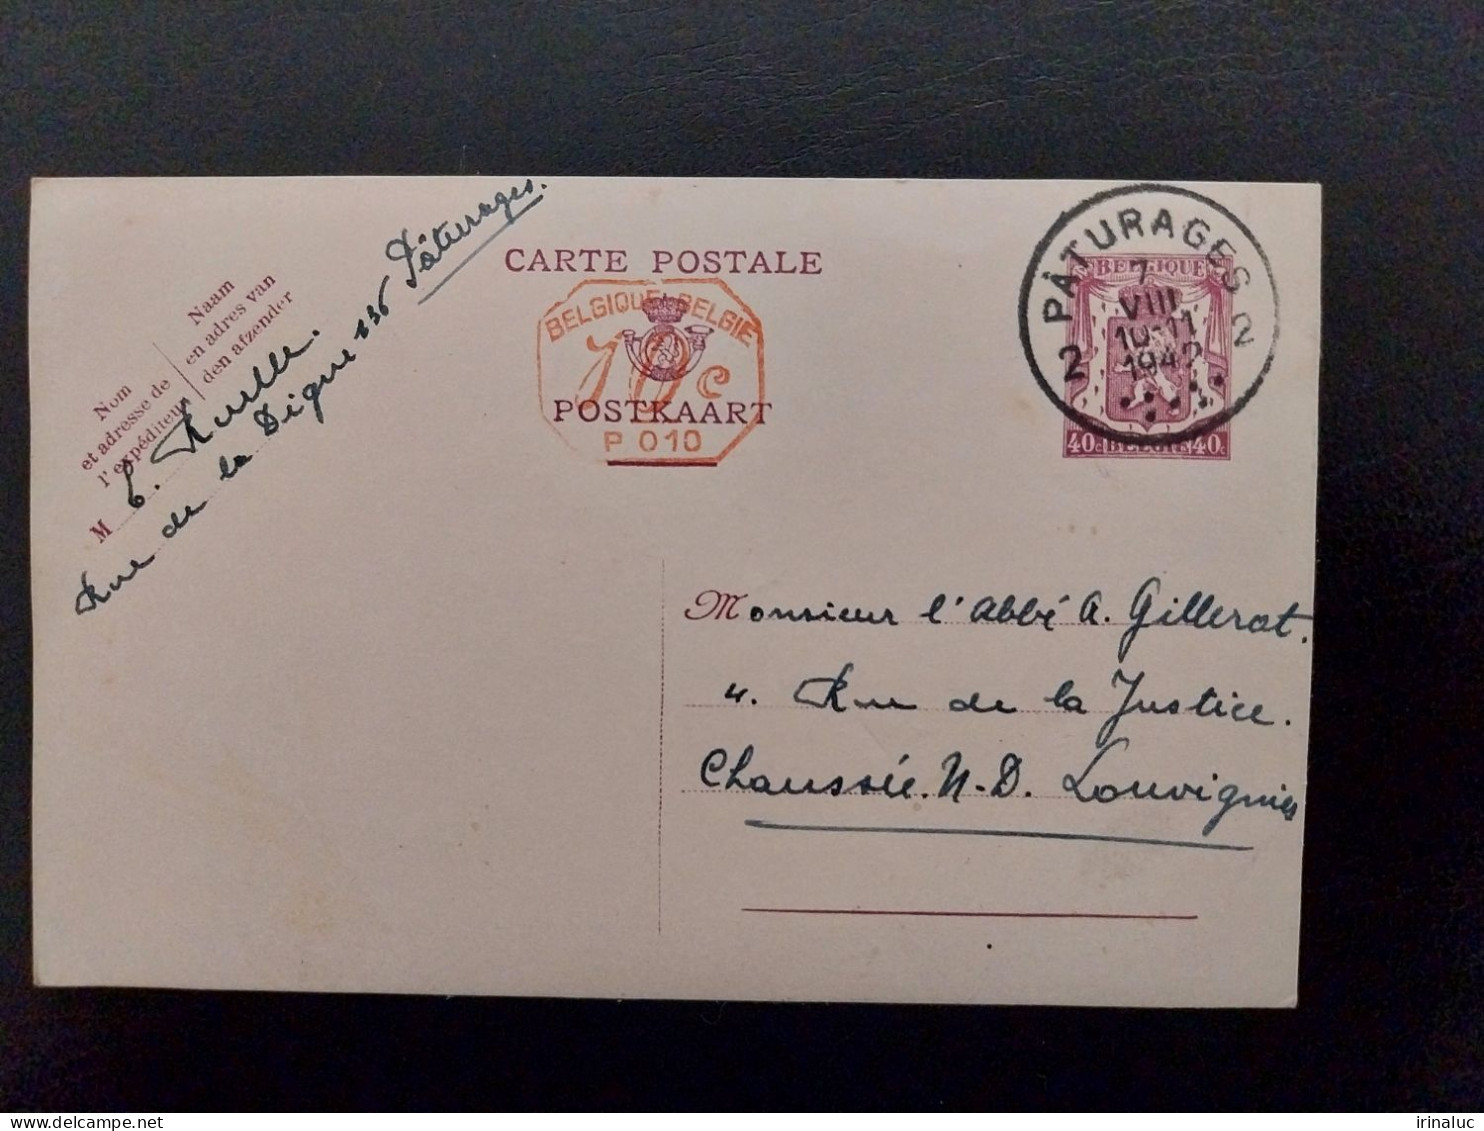 CARTE POSTALE
BELGIQUE BELGIE
10c
POSTKAART
P 010
2 PÂTURAGES 2
7
VIII
10-11
1942
BELGIQUE
40c BELGIË 40c
Nom
et adresse de
l'expéditeur
Naam
en adres van
den afzender
M E. Ruelle.
Rue de la Digue 136 Pâturages.
Monsieur l'Abbé A. Gillerot.
4. Rue de la Justice.
Chaussée N-D. Louvignies
irinaluc